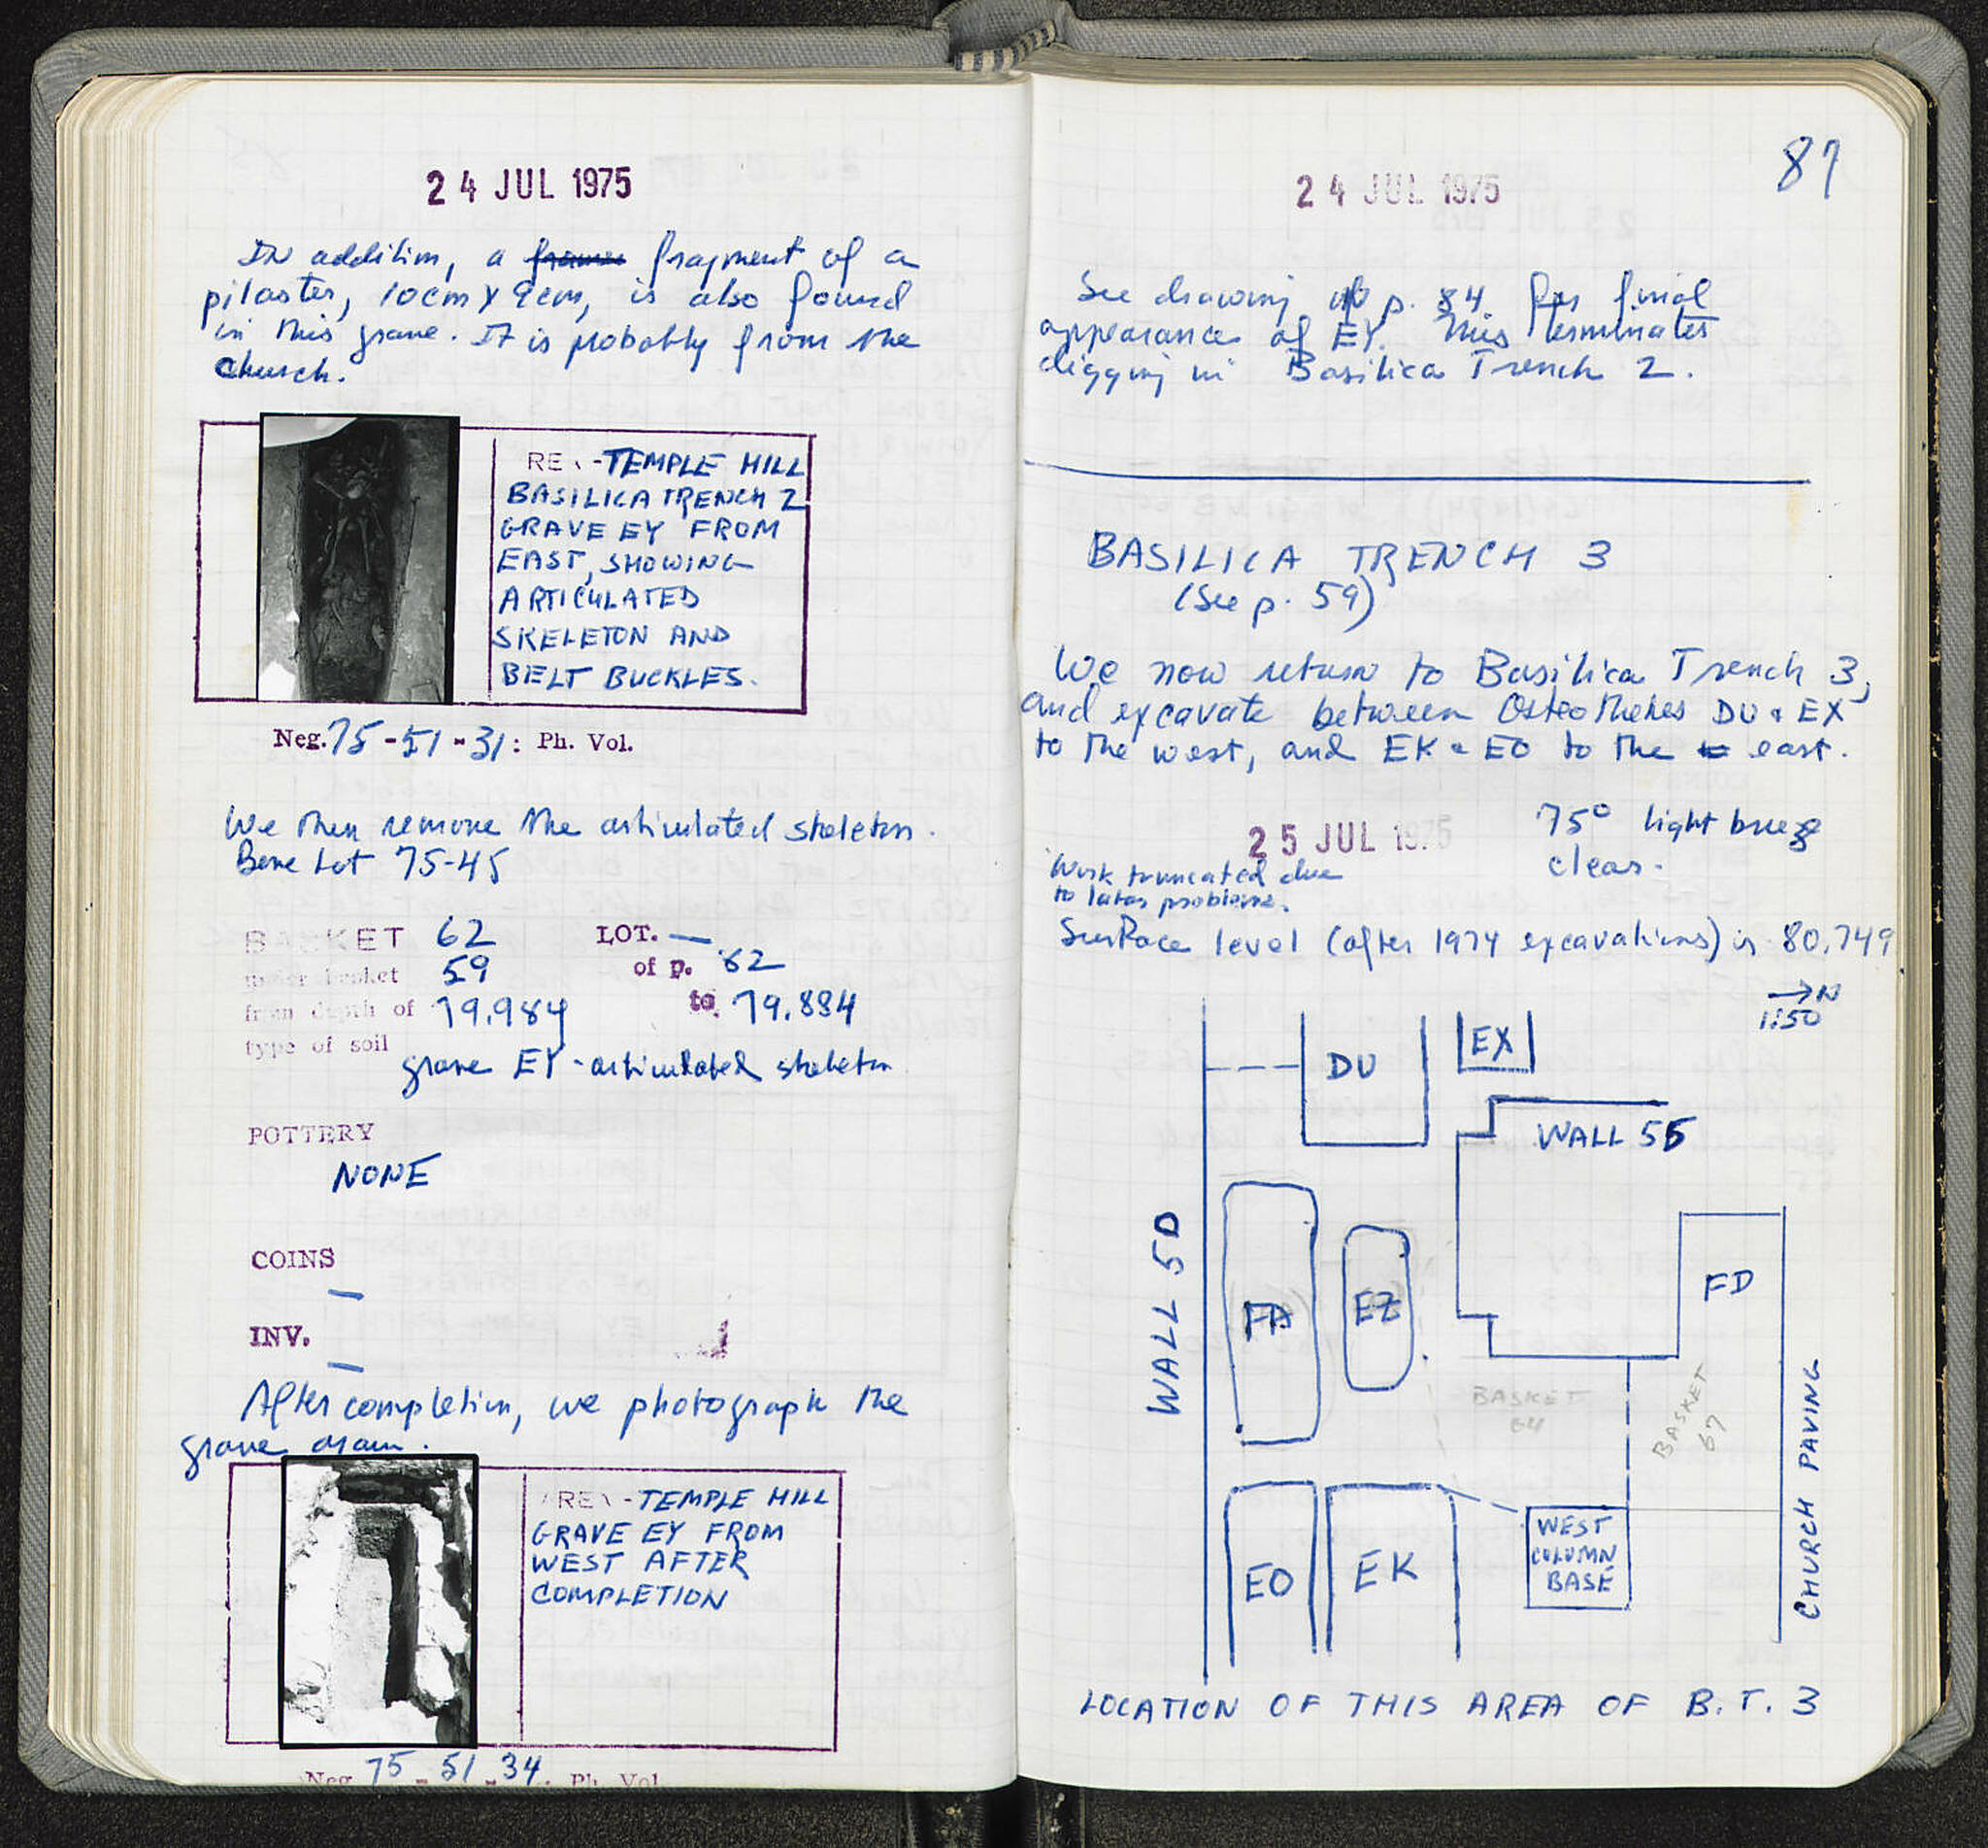 24 JUL 1975
IN addition, a frame fragment of a
pilaster, 10cm x 9cm, is also found
in this grave. It is probably from the
church.
REV-TEMPLE HILL
BASILICA TRENCH 2
GRAVE EY FROM
EAST, SHOWING
ARTICULATED
SKELETON AND
BELT BUCKLES.
Neg. 75-51-31: Ph. Vol.
We then remove the articulated skeleton.
Bone Lot 75-45
BASKET 62 LOT. —
under basket 59 of p. 62
from depth of 79.984 to 79.884
type of soil
grave EY - articulated skeleton
POTTERY
NONE
COINS
—
INV.
—
After completion, we photograph the
grave again.
REV-TEMPLE HILL
GRAVE EY FROM
WEST AFTER
COMPLETION
Neg. 75-51-34: Ph. Vol.
87
24 JUL 1975
See drawing p. 84 for final
appearance of EY. This terminates
digging in Basilica Trench 2.
BASILICA TRENCH 3
(See p. 59)
We now return to Basilica Trench 3,
and excavate between Osteothekes DU & EX
to the west, and EK & EO to the east.
25 JUL 1975
75° light breeze
clear.
Work truncated due
to labor problems.
Surface level (after 1974 excavations) is 80.749
→N
1:50
DU
EX
WALL 55
WALL 5D
FA
EZ
FD
BASKET
64
BASKET
67
CHURCH PAVING
EO
EK
WEST
COLUMN
BASE
LOCATION OF THIS AREA OF B.T. 3